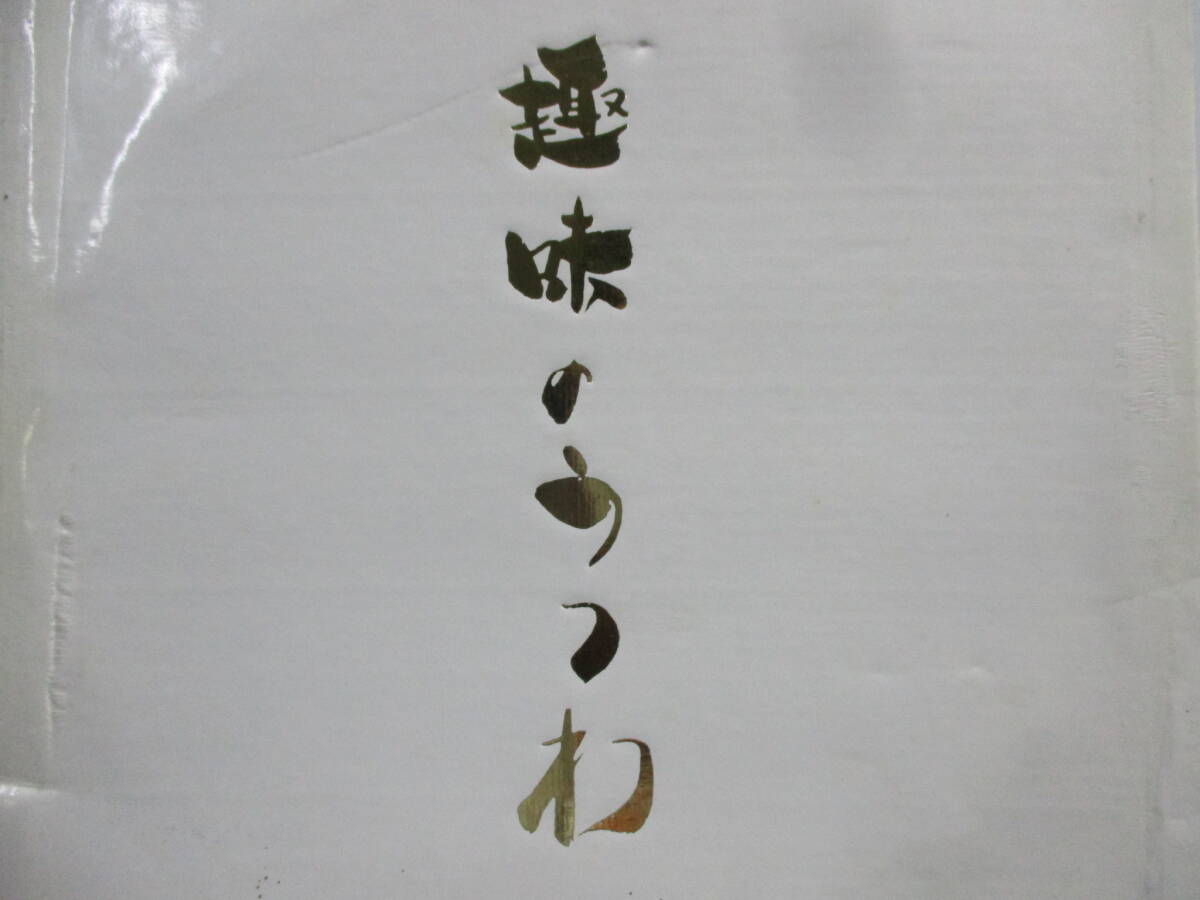 趣味のうつわ